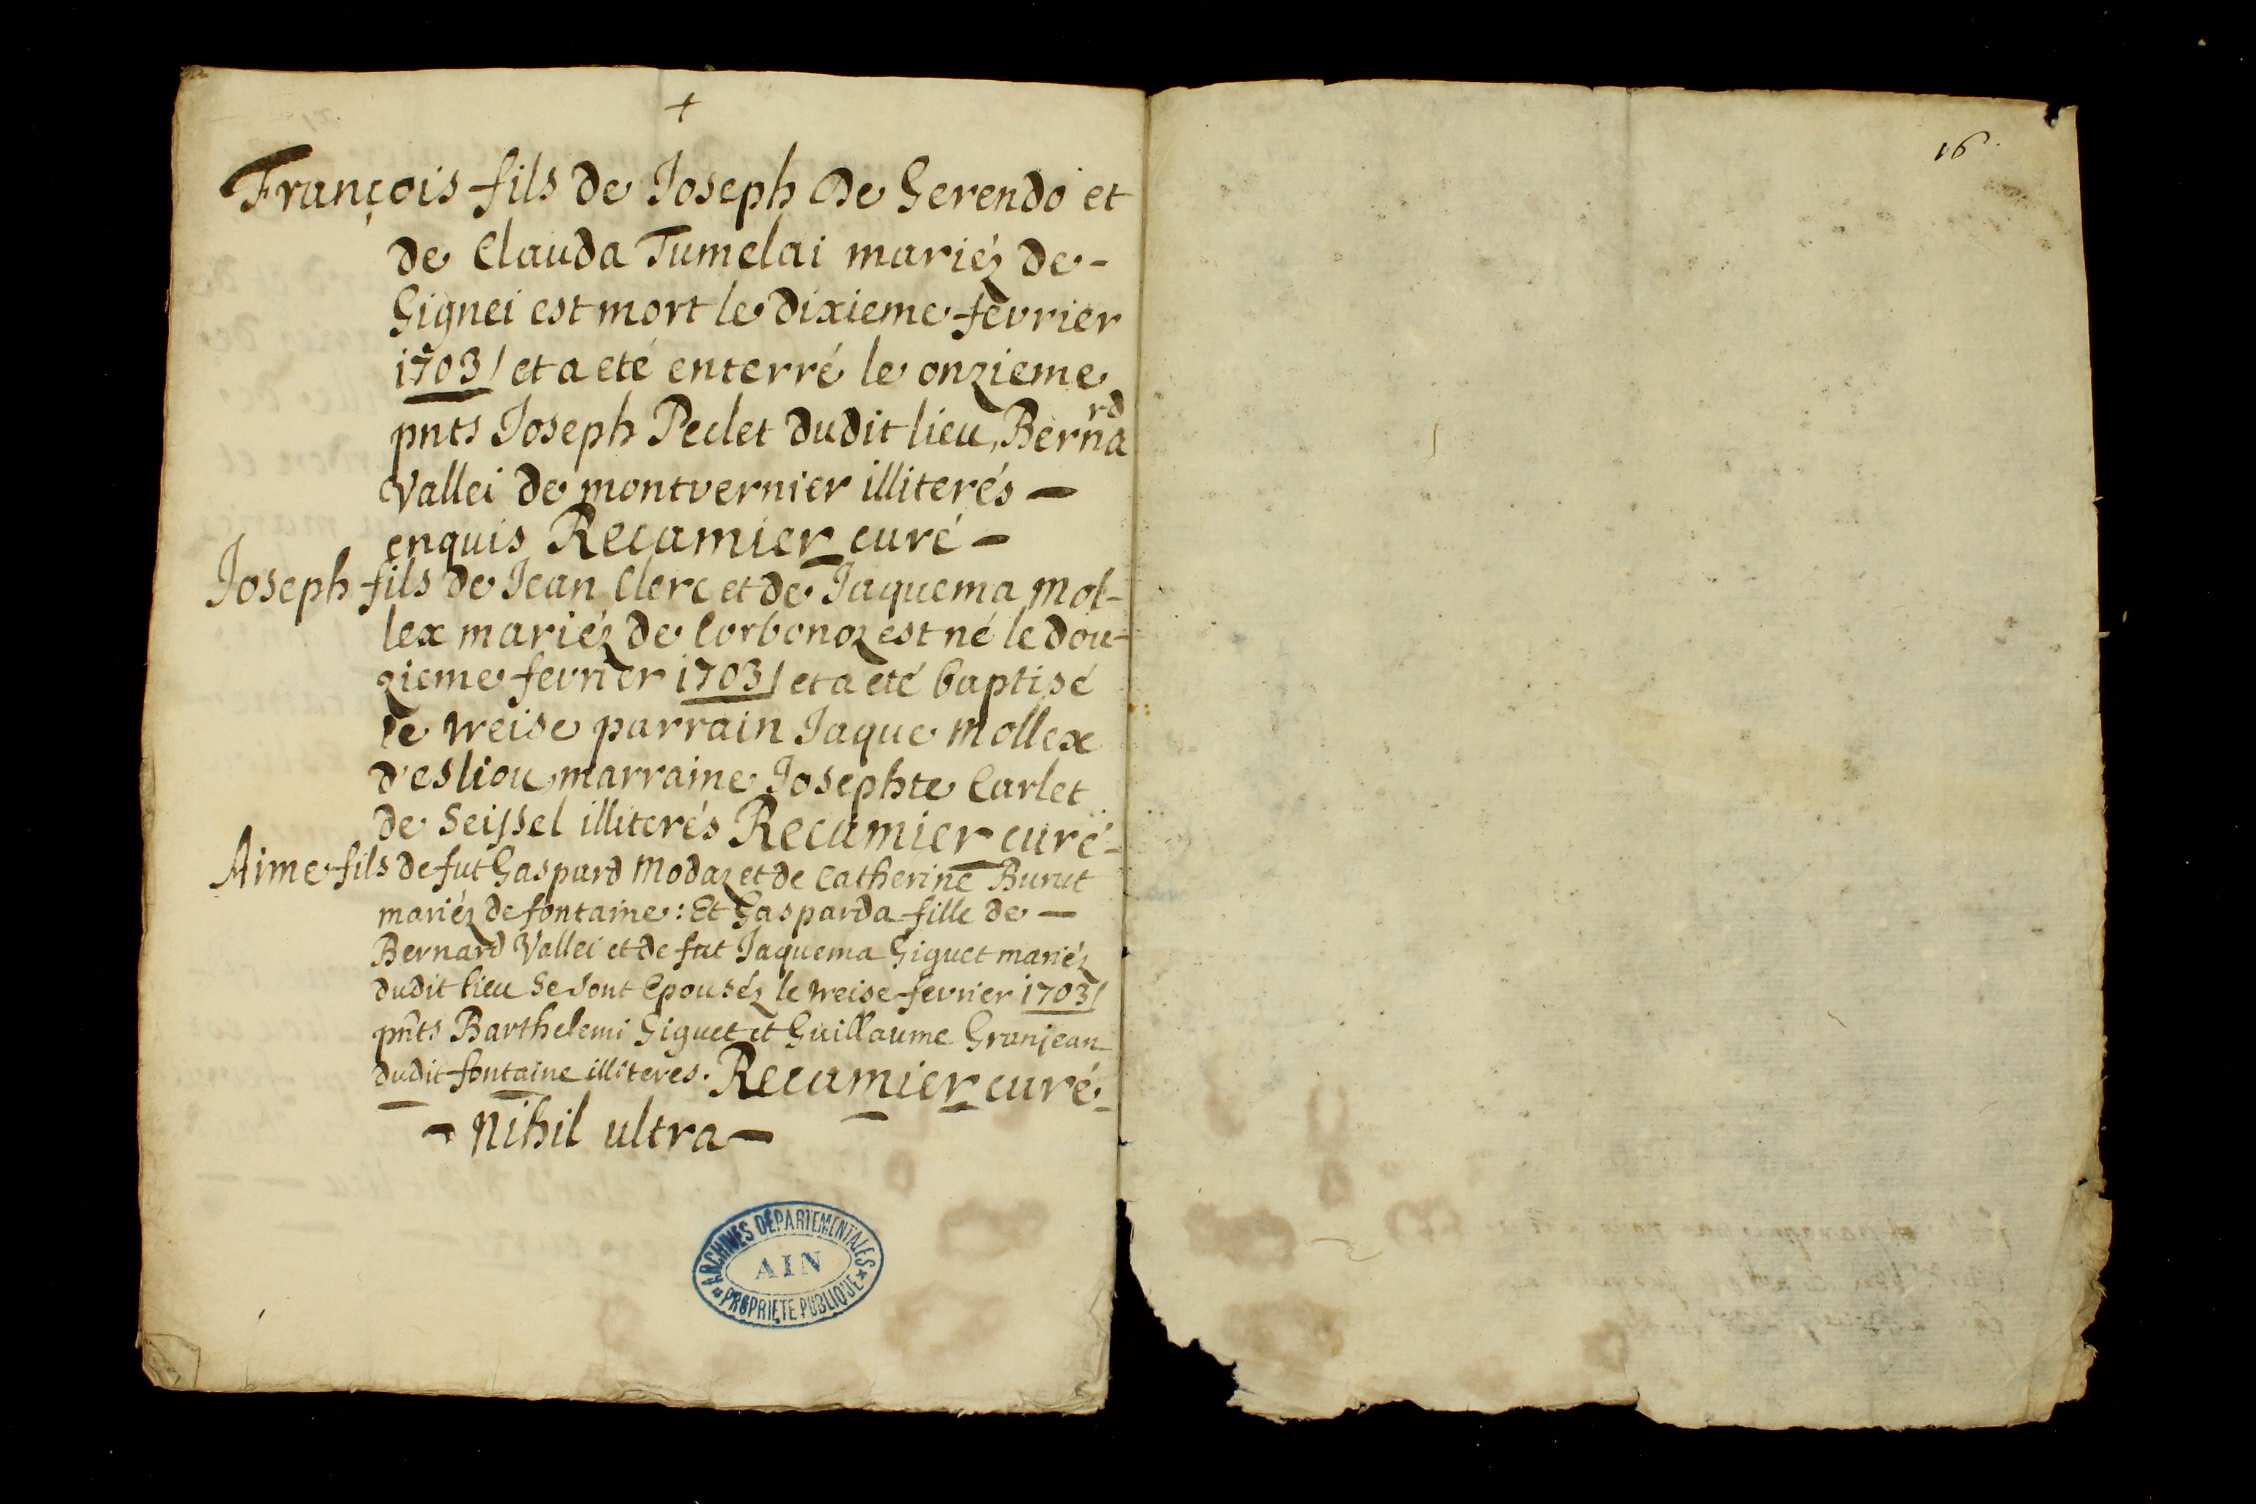 +
François fils de Joseph de Gerendo et
de Clauda Tumelai mariéz de -
Gignei est mort le dixieme fevrier
1703/ et a eté enterré le onzieme
pnts Joseph Peclet dudit lieu, Bernard
Vallei de montvernier illiterés —
enquis Recamier curé —
Joseph fils de Jean Clerc et de Jaquema Mol-
lex mariéz de Corbonoz est né le dou-
zieme fevrier 1703/ et a eté baptisé
le treise parrain Jaque Mollex
d'esliou marraine Josephte Carlet
de Seissel illiterés Recamier curé -
Aime fils de fut Gaspard Modaz et de Catherine Burut
mariéz de fontaine : Et Gasparda fille de —
Bernard Vallei et de fut Jaquema Giguet mariéz
dudit lieu se sont epouséz le treise fevrier 1703/
pnts Barthelemi Giguet et Guillaume Granjean
dudit fontaine illiteres. Recamier curé -
— Nihil ultra —
ARCHIVES DÉPARTEMENTALES
AIN
PROPRIÉTÉ PUBLIQUE
16